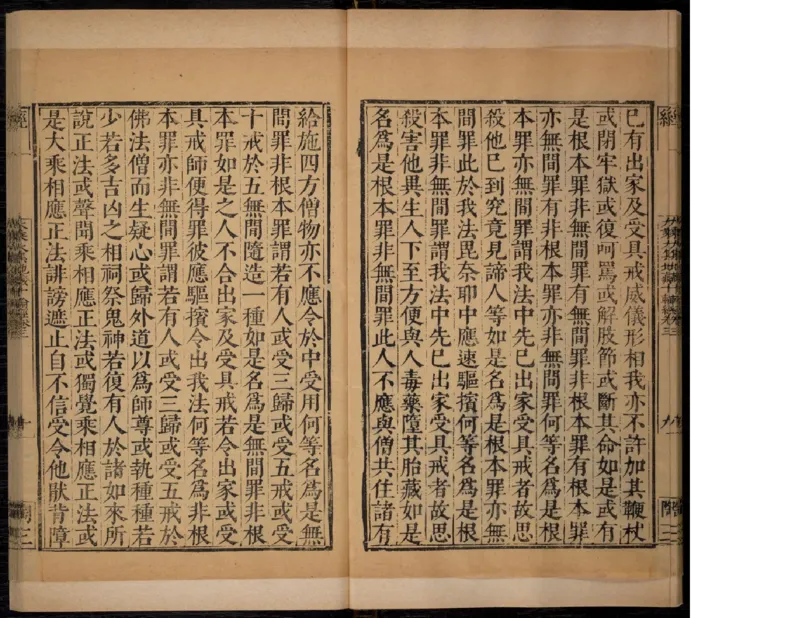 已有出家及受具戒威儀形相我亦不許加其鞭杖
或閉牢獄或復呵罵或解肢節或斷其命如是或有
是根本罪非無間罪有無間罪非根本罪有根本罪
亦無間罪有非根本罪亦非無間罪何等名爲是根
本罪亦無間罪謂我法中先已出家受具戒者故思
殺他已到究竟見諦人等如是名爲是根本罪亦無
間罪此於我法毘奈耶中應速驅擯何等名爲是根
本罪非無間罪謂我法中先已出家受具戒者故思
殺害他異生人下至方便與人毒藥墮其胎藏如是
名爲是根本罪非無間罪此人不應與僧共住諸有
給施四方僧物亦不應令於中受用何等名爲是無
間罪非根本罪謂若有人或受三歸或受五戒或受
十戒於五無間隨造一種如是名爲是無間罪非根
本罪如是之人不合出家及受具戒若令出家或受
具戒師便得罪彼應驅擯令出我法何等名爲非根
本罪亦非無間罪謂若有人或受三歸或受五戒於
佛法僧而生疑心或歸外道以爲師尊或執種種若
少若多吉凶之相祠祭鬼神若復有人於諸如來所
說正法或聲聞乘相應正法或獨覺乘相應正法或
是大乘相應正法誹謗遮止自不信受令他猒背障